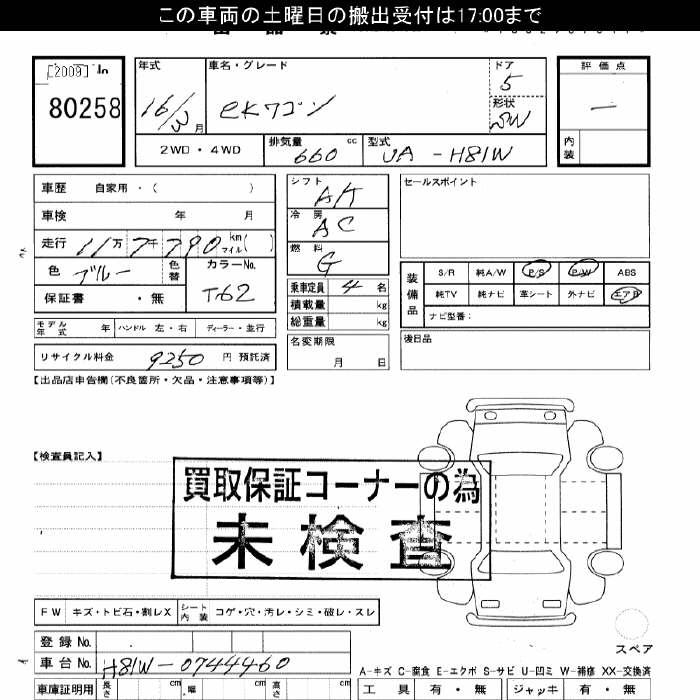 この車両の土曜日の搬出受付は17:00まで
[2009] In
80258
年式 車名・グレード ドア 評価点
16/3月 eKワゴン 5 —
形状 SW
2WD・4WD 排気量 660 cc 型式 UA-H81W 内装
車歴 自家用・( )
車検 年 月
走行 11万7千790 km マイル( )
色 ブルー 色替 カラーNo. T62
保証書 ・無
シフト AT
冷房 AC
燃料 G
乗車定員 4 名
積載量 kg
総重量 kg
名変期限
月 日
セールスポイント
装備品
S/R 純A/W P/S P/W ABS
純TV 純ナビ 革シート 外ナビ エアB
ナビ型番:
後日品
モデル年式 年 ハンドル 左・右 ディーラー・並行
リサイクル料金 9250 円 預託済
【出品店申告欄(不良箇所・欠品・注意事項等)】
【検査員記入】
買取保証コーナーの為
未検査
FW キズ・トビ石・割レX シート内装 コゲ・穴・汚レ・シミ・破レ・スレ
スペア
登録 No.
車台 No. H81W-0744460
A-キズ C-腐食 E-エクボ S-サビ U-凹ミ W-補修 XX-交換済
車庫証明用 長さ cm 幅 cm 高さ cm 工具 有・無 ジャッキ 有・無